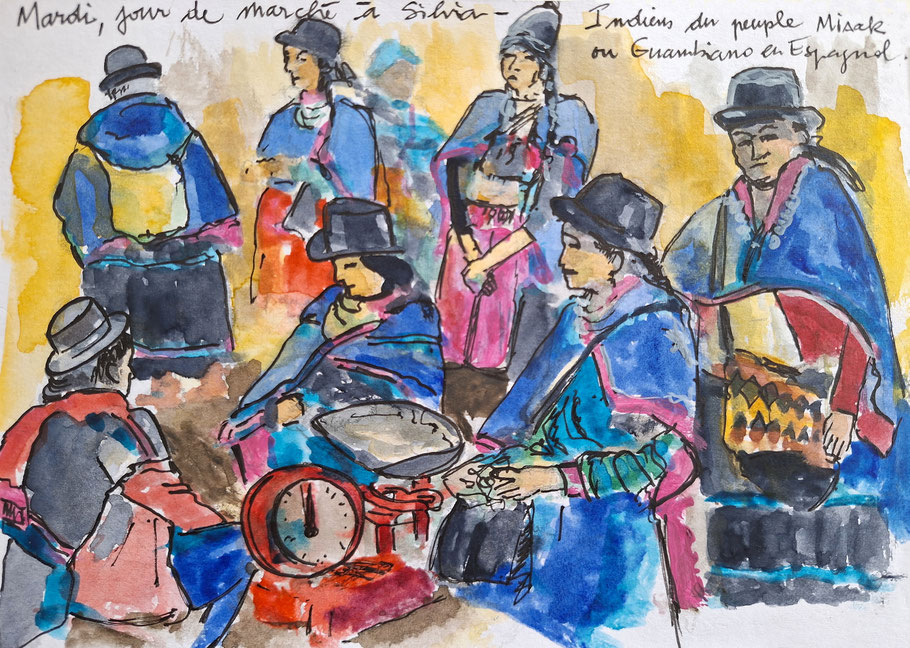 Mardi, jour de marché à Silvia -
Indiens du peuple Misak
ou Guambiano en Espagnol.